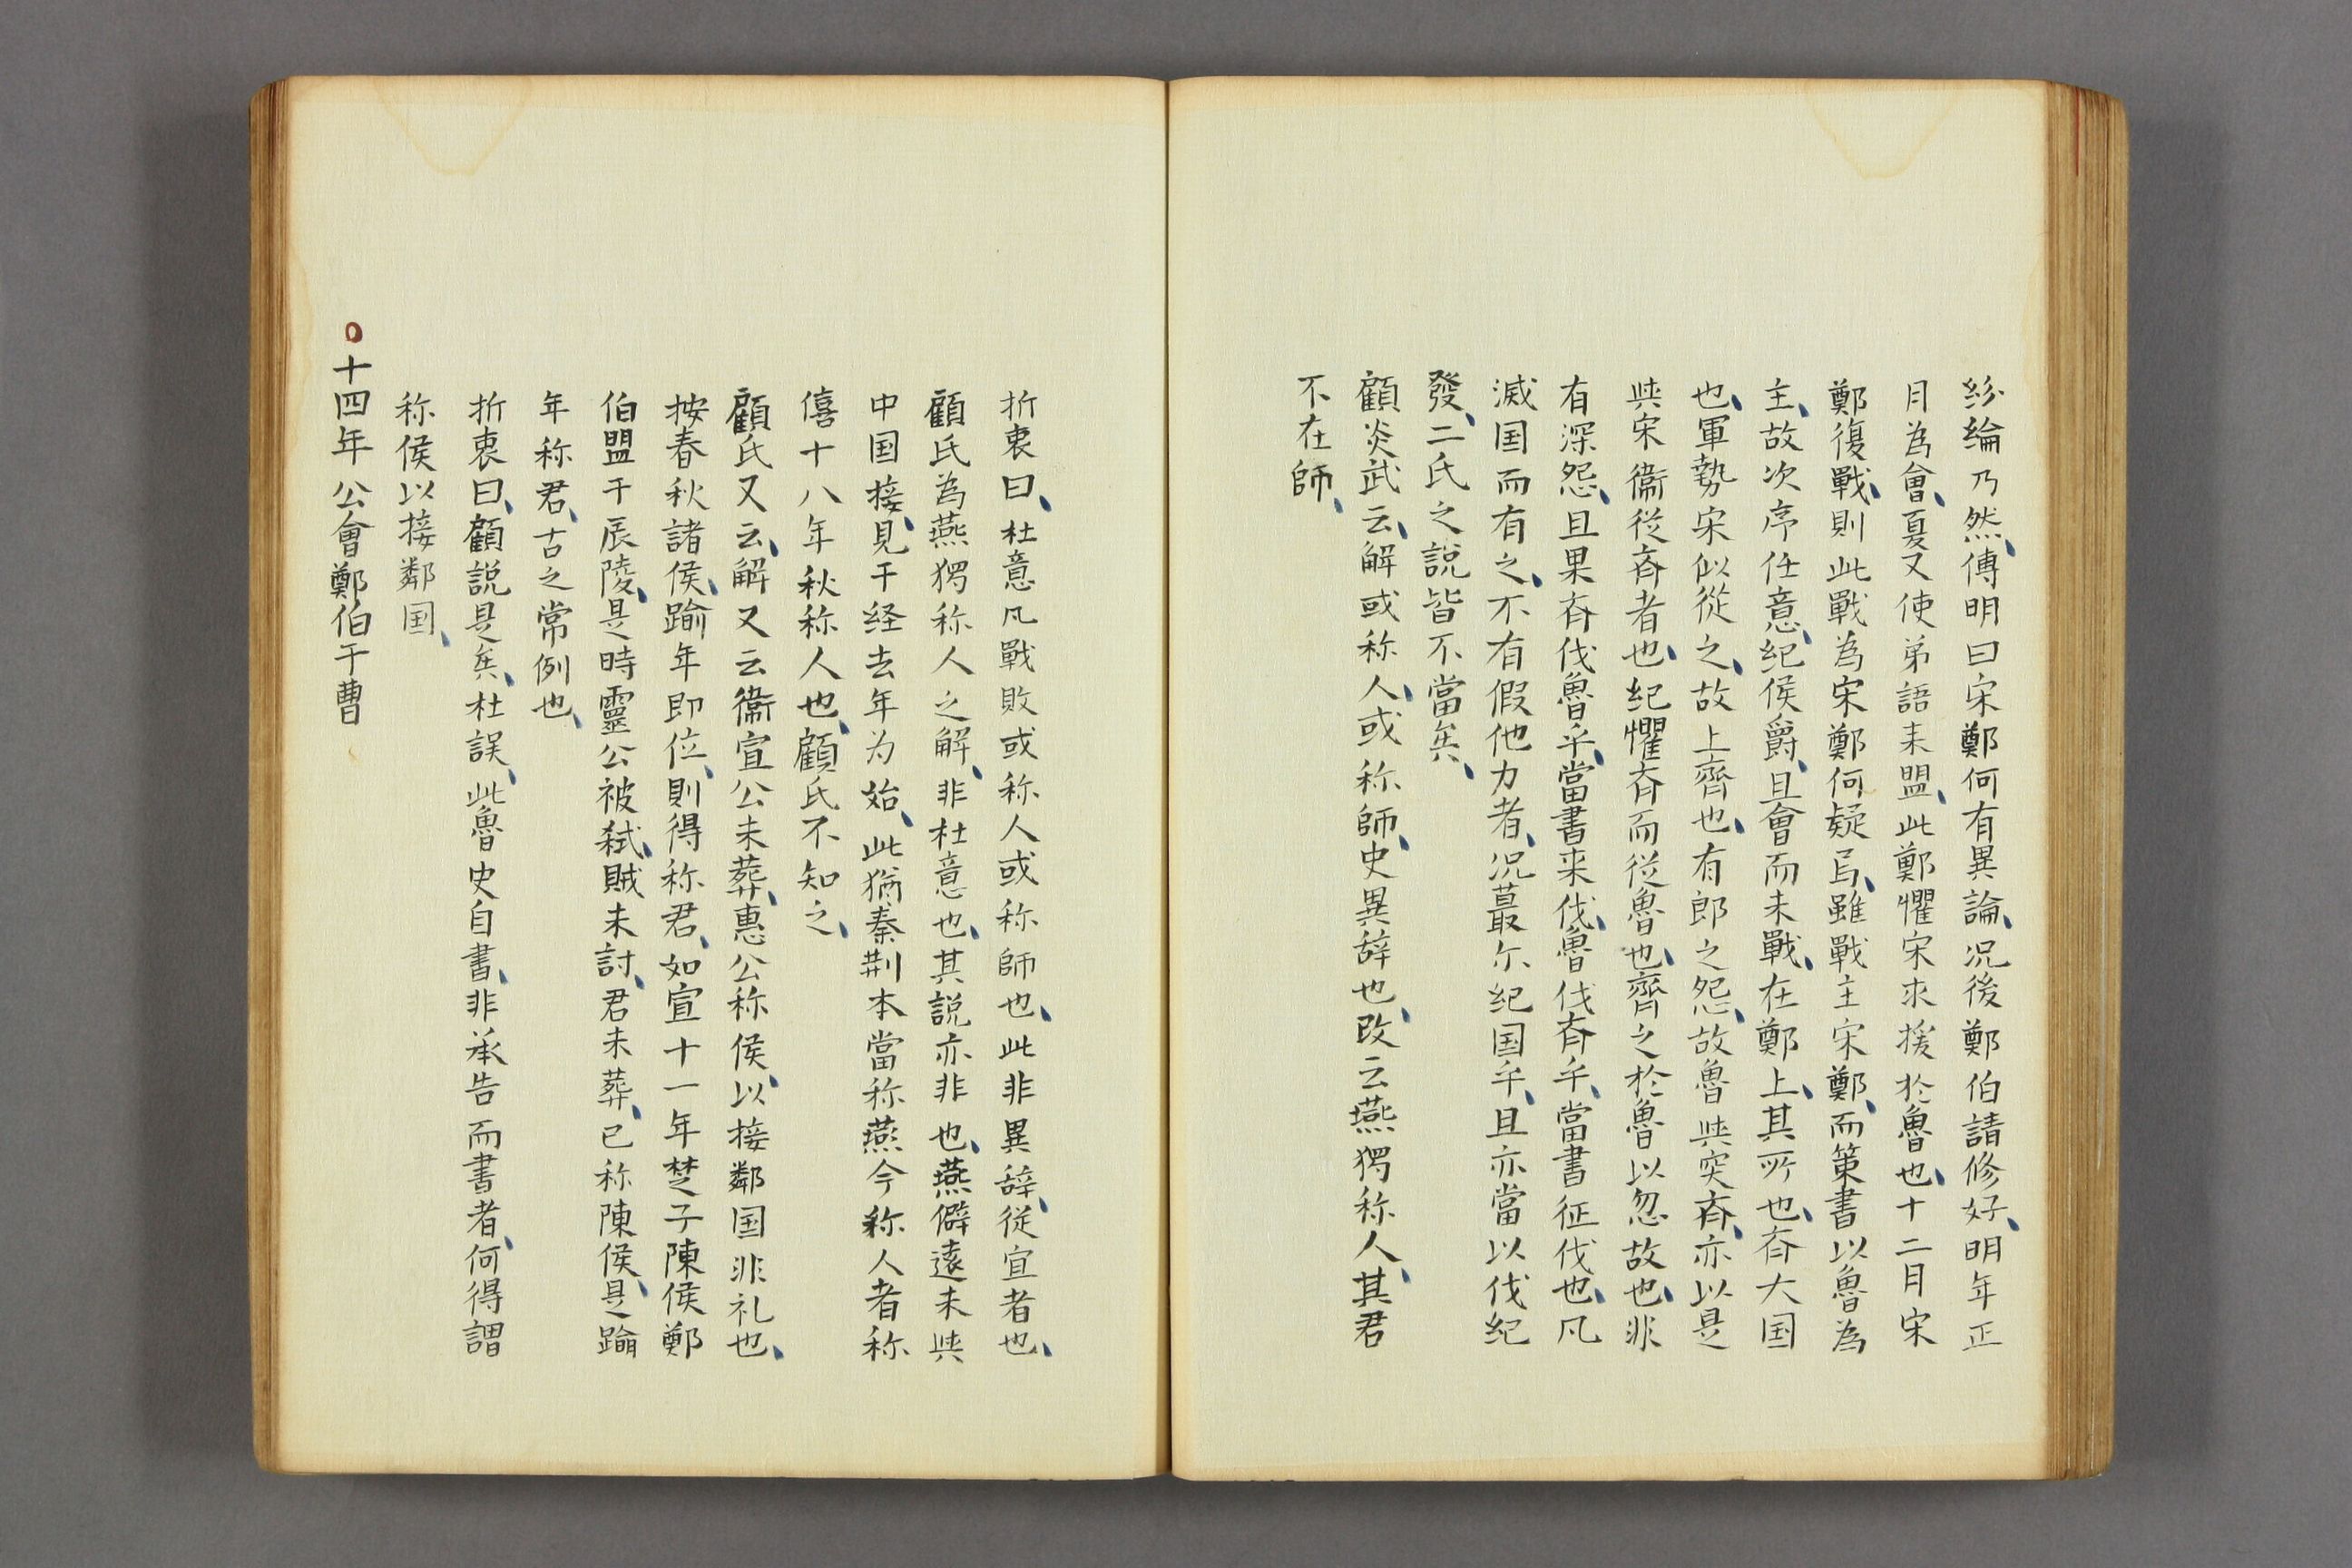 紛綸乃然、傳明曰宋鄭何有異論、况後鄭伯請修好、明年正
月為會、夏又使弟語来盟、此鄭懼宋求援於魯也、十二月宋
鄭復戰、則此戰為宋鄭何疑焉、雖戰主宋鄭、而策書以魯為
主、故次序任意、紀侯爵、且會而未戰、在鄭上、其所也、斉大国
也、軍勢宋似從之、故上齊也、有郎之怨、故魯與突斉、亦以是
與宋衞從斉者也、紀懼斉而從魯也、齊之於魯以忽故也、非
有深怨、且果斉伐魯乎、當書来伐、魯伐斉乎、當書征伐也、凡
滅国而有之、不有假他力者、况蕞尓紀国乎、且亦當以伐紀
發、二氏之説皆不當矣、
顧炎武云、解或称人、或称師、史異辞也、改云燕獨称人、其君
不在師、
折衷曰、杜意凡戰敗或称人或称師也、此非異辞、從宜者也、
顧氏為燕獨称人之解、非杜意也、其説亦非也、燕僻遠未與
中国接、見于経去年为始、此猶秦荆本當称燕今称人者称
僖十八年秋称人也、顧氏不知之、
顧氏又云、解又云衞宣公未葬、惠公称侯、以接鄰国非礼也、
按春秋諸侯、踰年即位、則得称君、如宣十一年楚子陳侯鄭
伯盟于辰陵、是時靈公被弑、賊未討、君未葬、已称陳侯、是踰
年称君、古之常例也、
折衷曰、顧説是矣、杜誤、此魯史自書、非承告而書者、何得謂
称侯以接鄰国、
○十四年公會鄭伯于曹